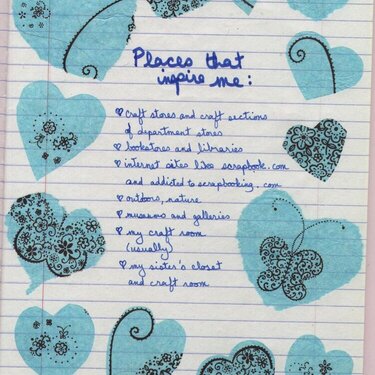 Places that
inspire me:
♥ craft stores and craft sections
of department stores
♥ bookstores and libraries
♥ internet sites like scrapbook.com
and addicted to scrapbooking.com
♥ outdoors, nature
♥ museums and galleries
♥ my craft room
(usually)
♥ my sister's closet
and craft room